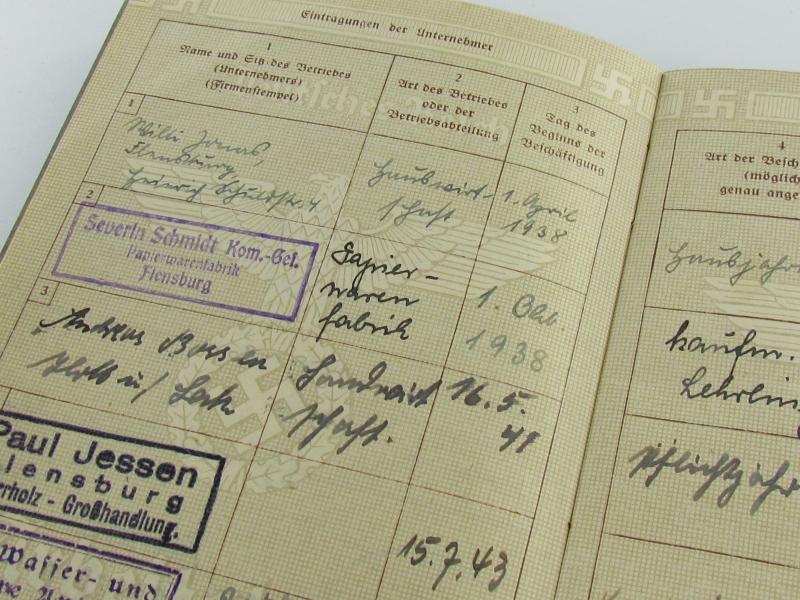 Eintragungen der Unternehmer
1
Name und Sitz des Betriebes
(Unternehmers)
(Firmenstempel)
2
Art des Betriebes
oder der
Betriebsabteilung
3
Tag des
Beginns der
Beschäftigung
1
Willi Jonas,
Flensburg,
Heinrich Schuldtstr. 4
Hauswirt-
schaft
1. April
1938
2
Severin Schmidt Kom.-Gel.
Papierwarenfabrik
Flensburg
Papier-
waren
fabrik
1. Okt
1938
3
Andreas
Landwirt
schaft.
16. 5.
41
Paul Jessen
lensburg
rholz - Großhandlung.
15.7.43
Wasser- und
4
Art der Besch
(möglich
genau ange
Hausjahr
kaufm.
Lehrlin
Pflichtjahr